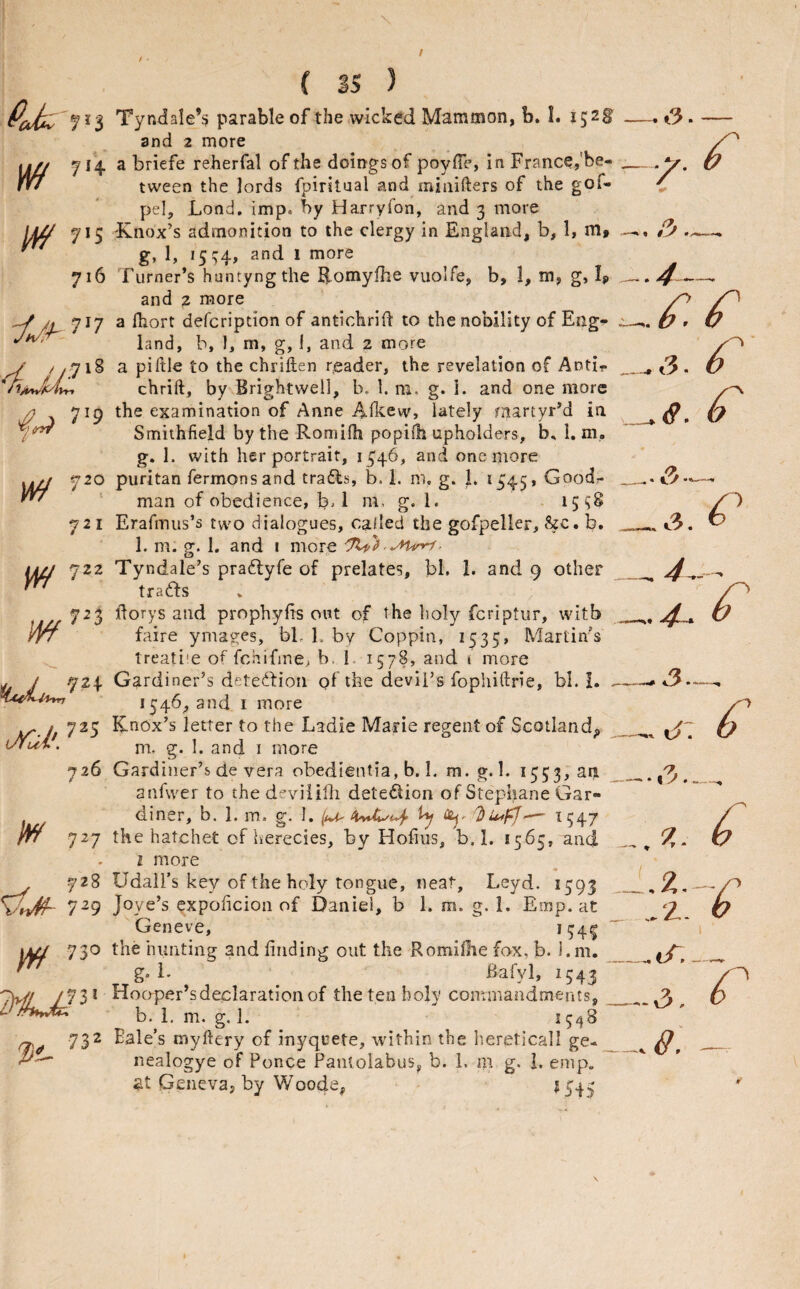 ( 35 )
713 Tyndale's parable of the wicked Mammon, b. l. 1528 —. 3. —
and 2 more
W 714 a briefe reherſal of the doings of poyſſe, in France, be- —. 7. 6
tween the lords ſpiritual and miniſters of the goſ-
pel, Lond. imp. by Harryſon, and 3 more
W 715 Knox's admonition to the clergy in England, b, l, m, —. 3. —
g, l, 1554, and 1 more
716 Turner's huntyng the Romyſhe vuolfe, b, l, m, g, l, —. 4 —
and 2 more
717 a ſhort deſcription of antichriſt to the nobility of Eng- —. 6. 6
land, b, l, m, g, l, and 2 more
718 a piſtle to the chriſten reader, the revelation of Anti- —. 3. 6
chriſt, by Brightwell, b. l. m. g. l. and one more
719 the examination of Anne Aſkew, lately martyr'd in —. 8. 6
Smithfield by the Romiſh popiſh upholders, b. l. m.
g. l. with her portrait, 1546, and one more
W 720 puritan ſermons and tracts, b. l. m. g. l. 1545, Good- —. 3. —
man of obedience, b. l m. g. l. 1558
721 Eraſmus's two dialogues, called the goſpeller, &c. b. —. 3. 6
l. m. g. l. and 1 more
W 722 Tyndale's practyſe of prelates, bl. l. and 9 other — 4. —
tracts
W 723 ſtorys and prophyſis out of the holy ſcriptur, with —. 4. 6
faire ymages, bl. l. by Coppin, 1535, Martin's
treatiſe of ſchiſme, b. l. 1578, and 1 more
724 Gardiner's detection of the devil's ſophiſtrie, bl. l. —. 3. —
1546, and 1 more
725 Knox's letter to the Ladie Marie regent of Scotland, —. 5. 6
m. g. l. and 1 more
726 Gardiner's de vera obedientia, b. l. m. g. l. 1553, an —. 3. —
anſwer to the deviliſh detection of Stephane Gar-
diner, b. l. m. g. l. 1547
W 727 the hatchet of herecies, by Hoſius, b. l. 1565, and —. 2. 6
2 more
728 Udall's key of the holy tongue, neat, Leyd. 1593 —. 2. —
729 Joye's expoſicion of Daniel, b l. m. g. l. Emp. at —. 2. 6
Geneve, 1545
W 730 the hunting and finding out the Romiſhe fox, b. l. m. —. 5. —
g. l. Baſyl, 1543
731 Hooper's declaration of the ten holy commandments, —. 3. 6
b. l. m. g. l. 1548
732 Bale's myſtery of inyquete, within the hereticall ge- —. 8. —
nealogye of Ponce Pantolabus, b. l. m g. l. emp.
at Geneva, by Woode, 1545